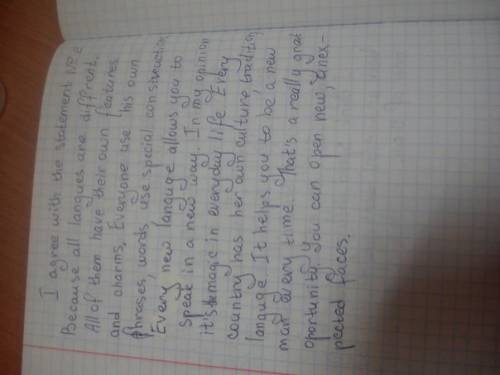 I agree with the statement № 2
Because all langues are different.
All of them have their own features
and charms. Everyone use his own
phrases, words use special construction
Every new language allows you to
speak in a new way. In my opinion
it's magic in everyday life. Every
country has her own culture, tradition,
languge. It helps you to be a new
man every time. That's a really great
oportunity. You can open new, unex-
pected faces.